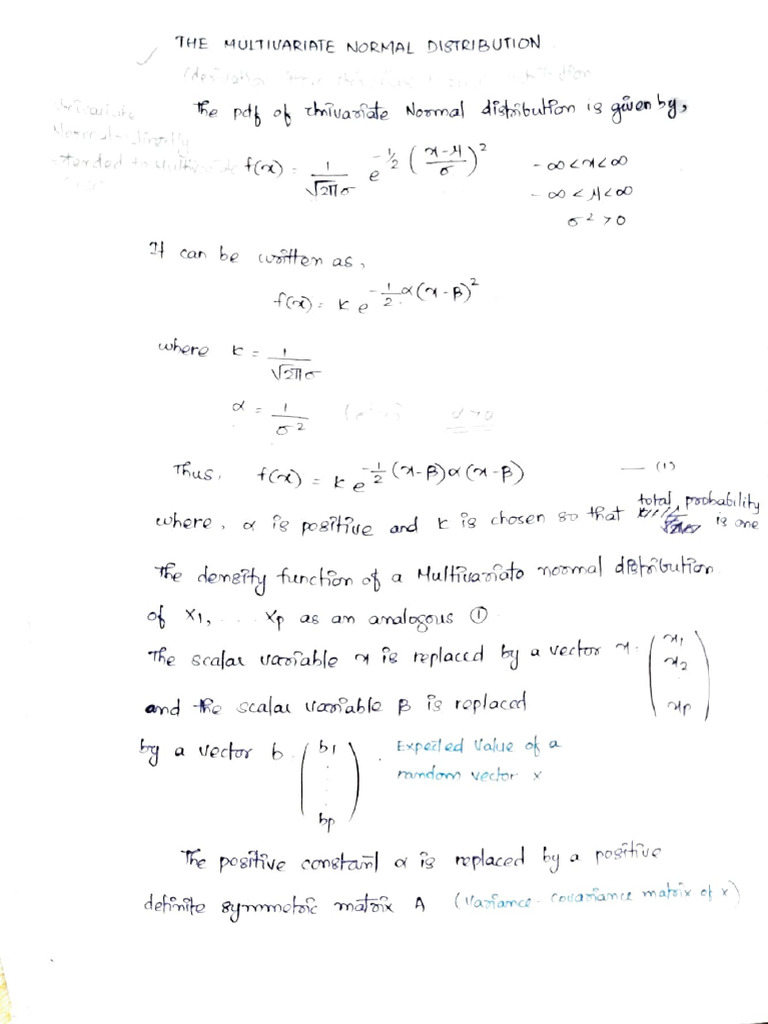 THE MULTIVARIATE NORMAL DISTRIBUTION
The pdf of Univariate Normal distribution is given by,
f(x) = 1/√2πσ e^-1/2 (x-μ/σ)^2 -∞<x<∞
-∞<μ<∞
σ^2>0
It can be written as,
f(x) = k e^-1/2 α(x-β)^2
where k = 1/√2πσ
α = 1/σ^2 α>0
Thus, f(x) = k e^-1/2 (x-β)α(x-β) — (1)
where, α is positive and k is chosen so that total probability is one
The density function of a Multivariate normal distribution
of X1, ... Xp as an analogous ①
The scalar variable x is replaced by a vector x. (x1 x2 . xp)
and the scalar variable β is replaced
by a vector b. (b1 . . . bp) . Expected Value of a
random vector x
The positive constant α is replaced by a positive
definite symmetric matrix A (Variance - covariance matrix of x)